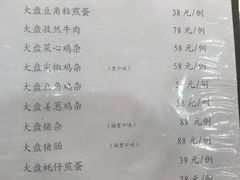 大盘豆角粒煎蛋 38元/例
大盘孜然牛肉 78元/例
大盘菜心鸡杂 58元/例
大盘尖椒鸡杂 (重口味) 58元/例
大盘豆角鸡杂 58元/例
大盘姜葱鸡杂 58元/例
大盘猪杂 (偏重口味) 88元/例
大盘猪肠 (偏重口味) 88元/例
大盘蚝仔煎蛋 39元/例
78元